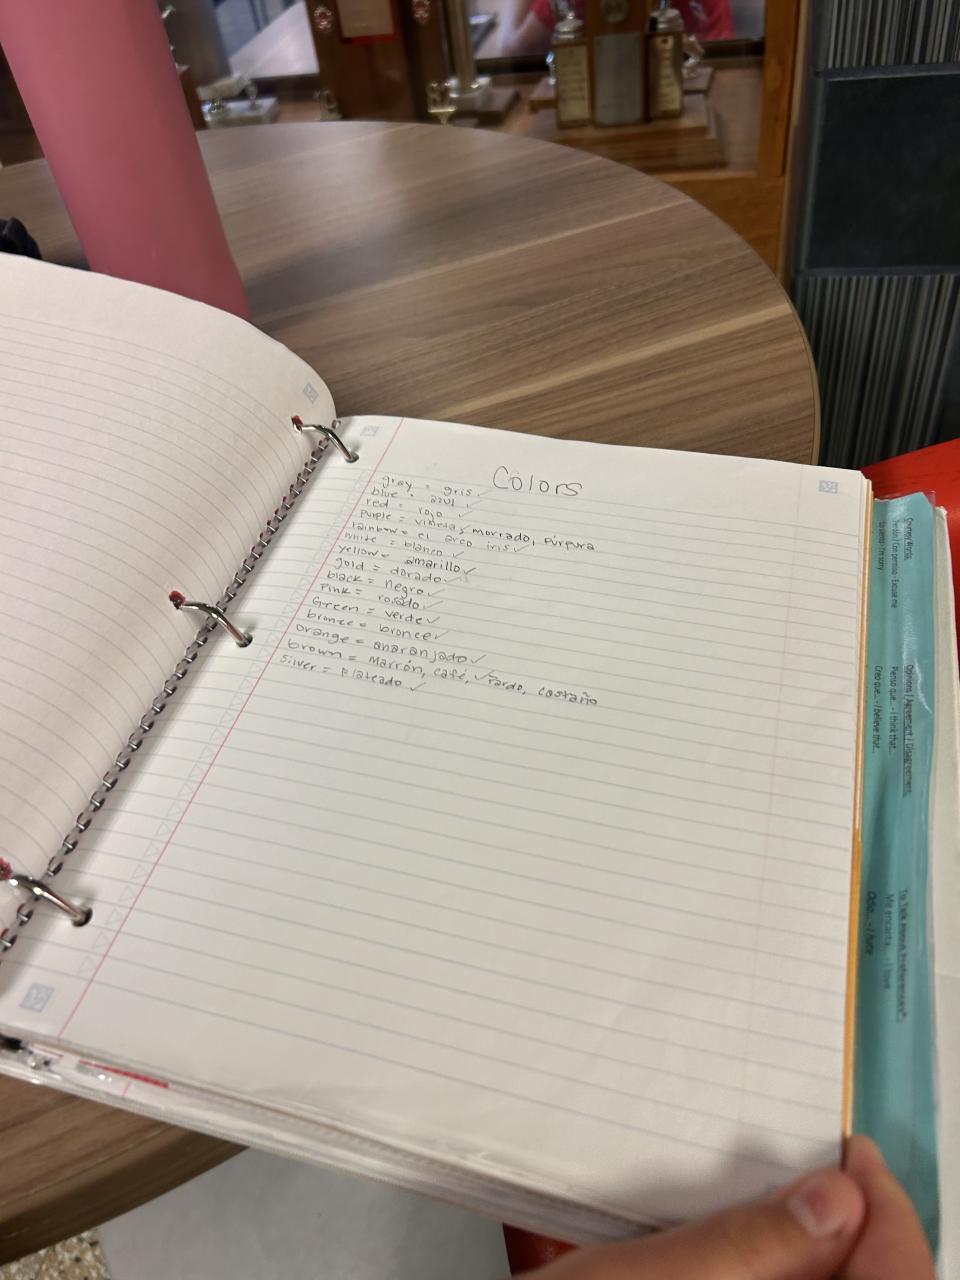 Colors
gray = gris ✓
blue = azul ✓
red = rojo ✓
purple = violeta, ✓ morrado, púrpura
rainbow = el arco iris ✓
white = blanco ✓
yellow = amarillo ✓
gold = dorado ✓
black = negro ✓
Pink = rosado ✓
Green = verde ✓
bronze = bronce ✓
orange = anaranjado ✓
brown = Marrón, café, ✓ Pardo, castaño
silver = Plateado ✓
Courtesy Words:
Perdón / Con permiso - Excuse me
Lo siento - I'm sorry
Opinions / Agreement / Disagreement:
Pienso que... - I think that...
Creo que... - I believe that...
To Talk About Preferences:
Me encanta... - I love
Odio... - I hate